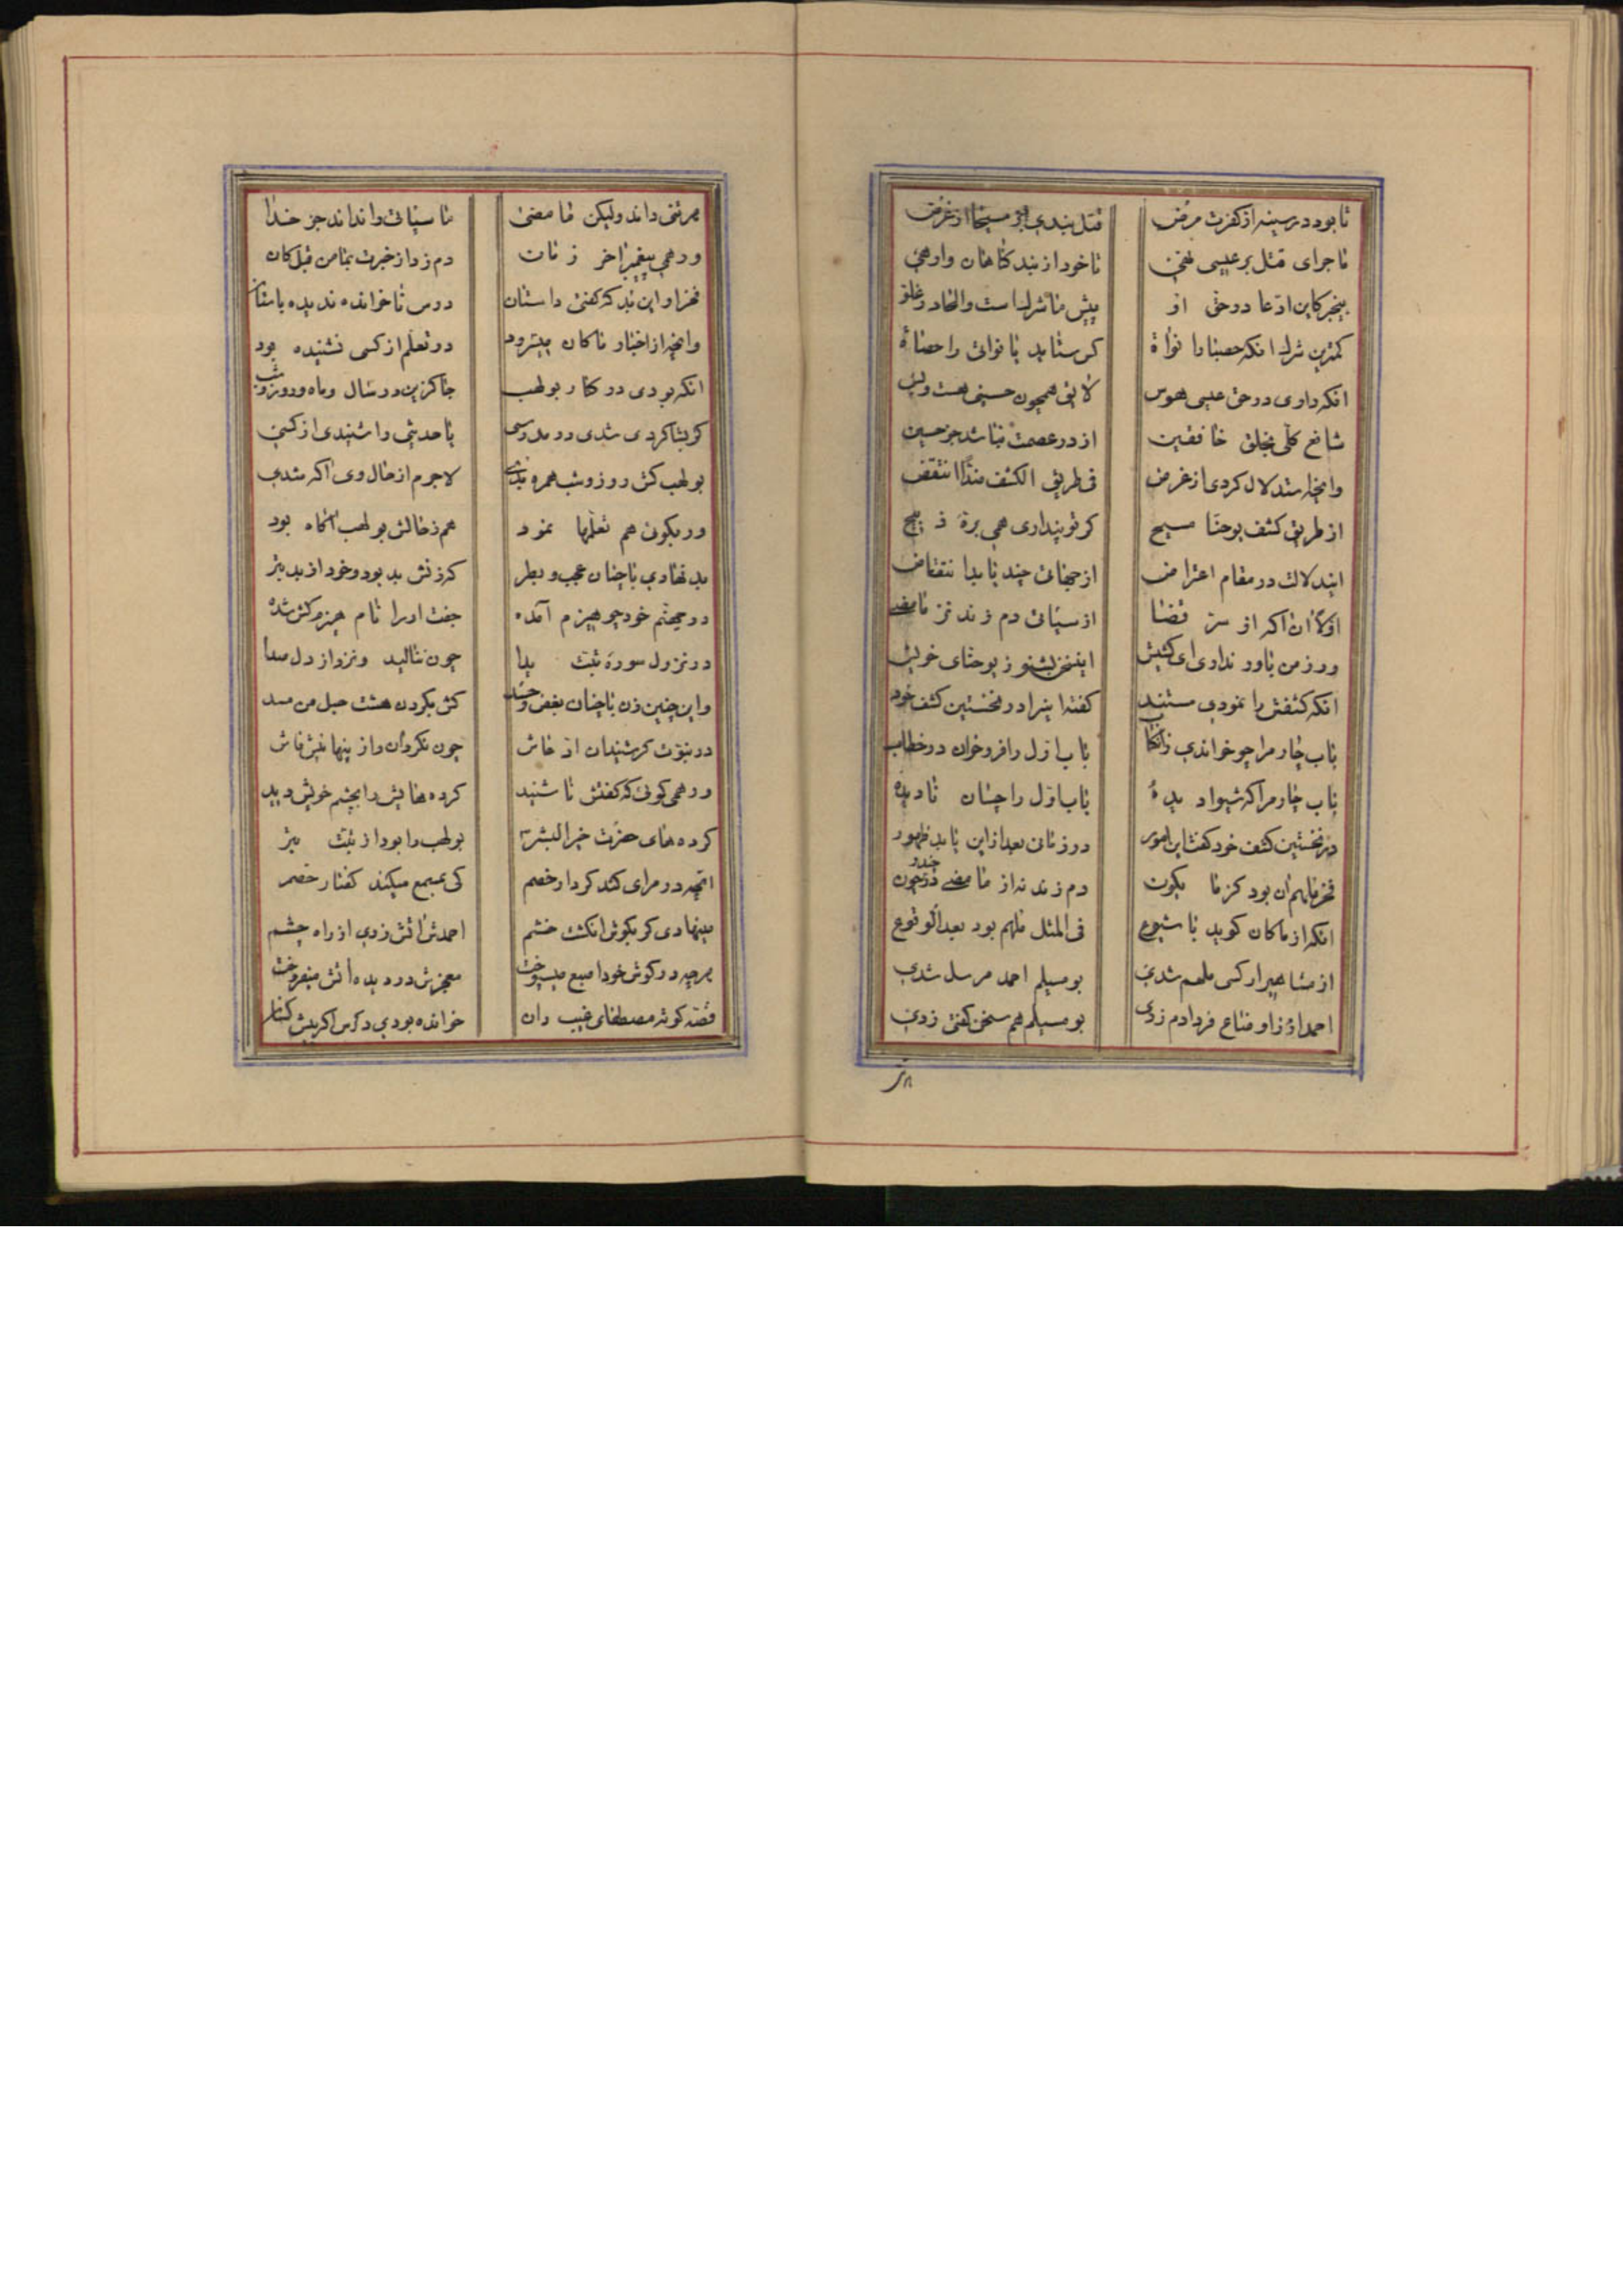 تا بود در سینه از کفرت مرض قتل بندی بر مسیحا از غرض
ماجرای قتل بر عیسی نهی تا خود از بند گناهان وارهی
بیخبر کاین ادعا در حق او پیش ما شرک است والحاد و غلو
کمترین شرک انکه حصبا را نواة کر ستاید یا نواتی را حصاة
انکه داری در حق عیسی هوس لایق همچون حسینی هست وبس
شافع کلی بخلق خافقین از در عصمت نباشد جز حسین
وانچه استدلال کردی از غرض فی طریق الکشف هذا انتقض
از طریق کشف یوحنا مسیح کر تو پنداری همی برة ذبیح
این دلالت در مقام اعتراض از جهاتی چند یابد انتقاض
اولا ان اکه از سر قضا از سیاتی دم زند نز ما مضی
ور ز من باور نداری ای کشیش این سخن بشنو ز یوحنای خویش
انکه کشفش را نمودی مستند گفته اینرا در نخستین کشف خود
باب چارم را چو خواندی زان کتاب باب اول را فرو خوان در خطاب
باب چارم را که شیوا دیدهٔ باب اول را چسان نادیدهٔ
در نخستین کشف خود گفت این امور در زمانی بعد از این یابد ظهور
فخر ملهم ان بود کز ما یکون دم زند نه از ما مضی
انکه از ما کان گوید با شیوع فی المثل ملهم بود بعد الوقوع
از مشاهیر ار کسی ملهم شدی بو مسیلم احمد مرسل شدی
احمد از اوضاع فردا دم زدی بو مسیلم هم سخن گفتی زدی
هر تنی داند ولیکن ما مضی ما سیاتی را نداند جز خدا
ور همی پیغمبر اخر زمان دم زد از خبرت بما من قبل کان
فخر او این بد که گفتی داستان درس ناخوانده ندیده باستان
وانچه از اخبار ما کان میسرود در تعلم از کسی نشنیده بود
انکه بودی در کنار بولهب جاگزین در سال وماه و روز و شب
گر بشاگردی شدی در مدرسی یا حدیثی را شنیدی از کسی
بولهب کش روز و شب همره بدی لاجرم از حال وی اکه شدی
ور بگوئی هم تعلمها نمود هم ز حالش بولهب اکاه بود
بد نهادی با چنان عجب و بطر که زنش بد بود و خود از بد بتر
در جهنم خود چو هیزم آمده جفت او را نام هیزم کش شده
در نزول سوره تبت یدا چون ننالید ونزد از دل صدا
واین چنین زن با چنان بغض و حسد کش بگردن هشت حبل من مسد
در نبوت گر شنیدان از خاش چون نکرد ان راز پنهانیش فاش
ور همی گوئی که گفتش ناشنید کرده هایش را بچشم خویش دید
کرده های حضرت خیر البشر بولهب را بود از تبت بتر
انچه در مرای کند کردار خصم کی بمسمع میکند گفتار خصم
مینهادی گر بگوش انگشت خشم احمدش اتش زدی از راه چشم
هر چه در گوش خود اصبع میسوخت معجزش در دیده اتش میفروخت
قصه کوته مصطفای غیب دان خوانده بودی درس اکر پیش کسان